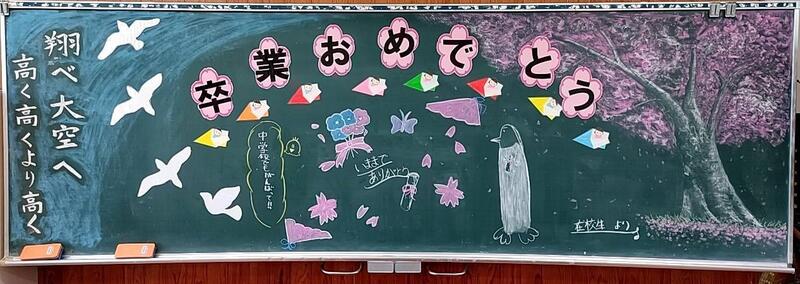 翔べ 大空へ
高く高くより高く
卒業おめでとう
中学校でもがんばって!!
いままで
ありがとう
在校生 より